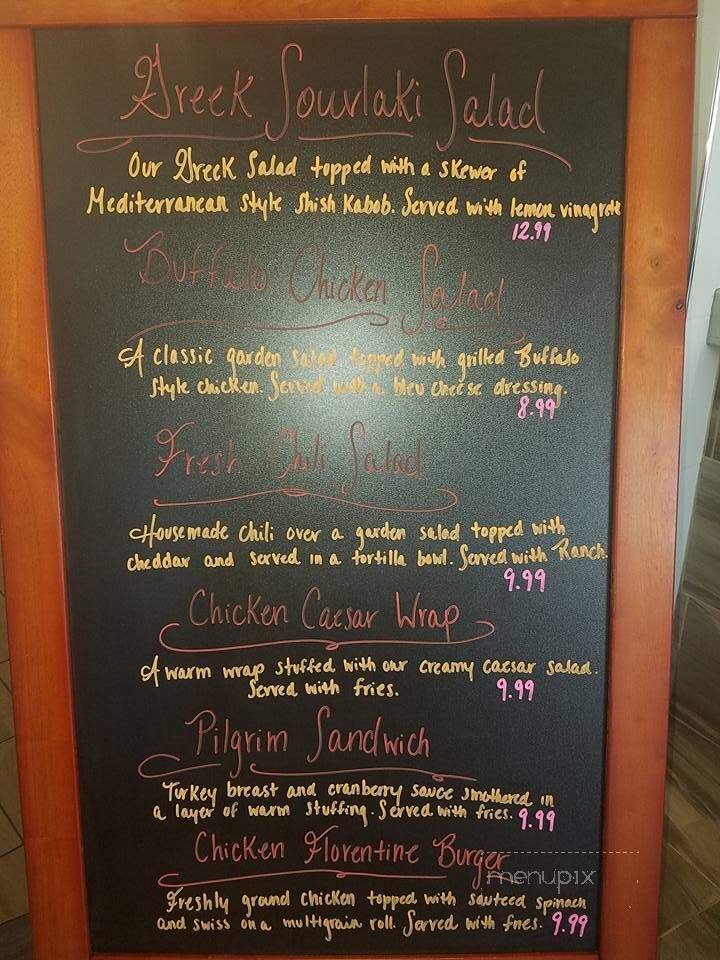 Greek Souvlaki Salad
Our Greek Salad topped with a skewer of
Mediterranean style shish kabob. Served with lemon vinagrete
12.99
Buffalo Chicken Salad
A classic garden salad topped with grilled Buffalo
style chicken. Served with a bleu cheese dressing.
8.99
Fresh Chili Salad
Housemade chili over a garden salad topped with
cheddar and served in a tortilla bowl. Served with Ranch.
9.99
Chicken Caesar Wrap
A warm wrap stuffed with our creamy caesar salad.
Served with fries. 9.99
Pilgrim Sandwich
Turkey breast and cranberry sauce smothered in
a layer of warm stuffing. Served with fries. 9.99
Chicken Florentine Burger
menupix
Freshly ground chicken topped with sauteed spinach
and swiss on a multigrain roll. Served with fries. 9.99